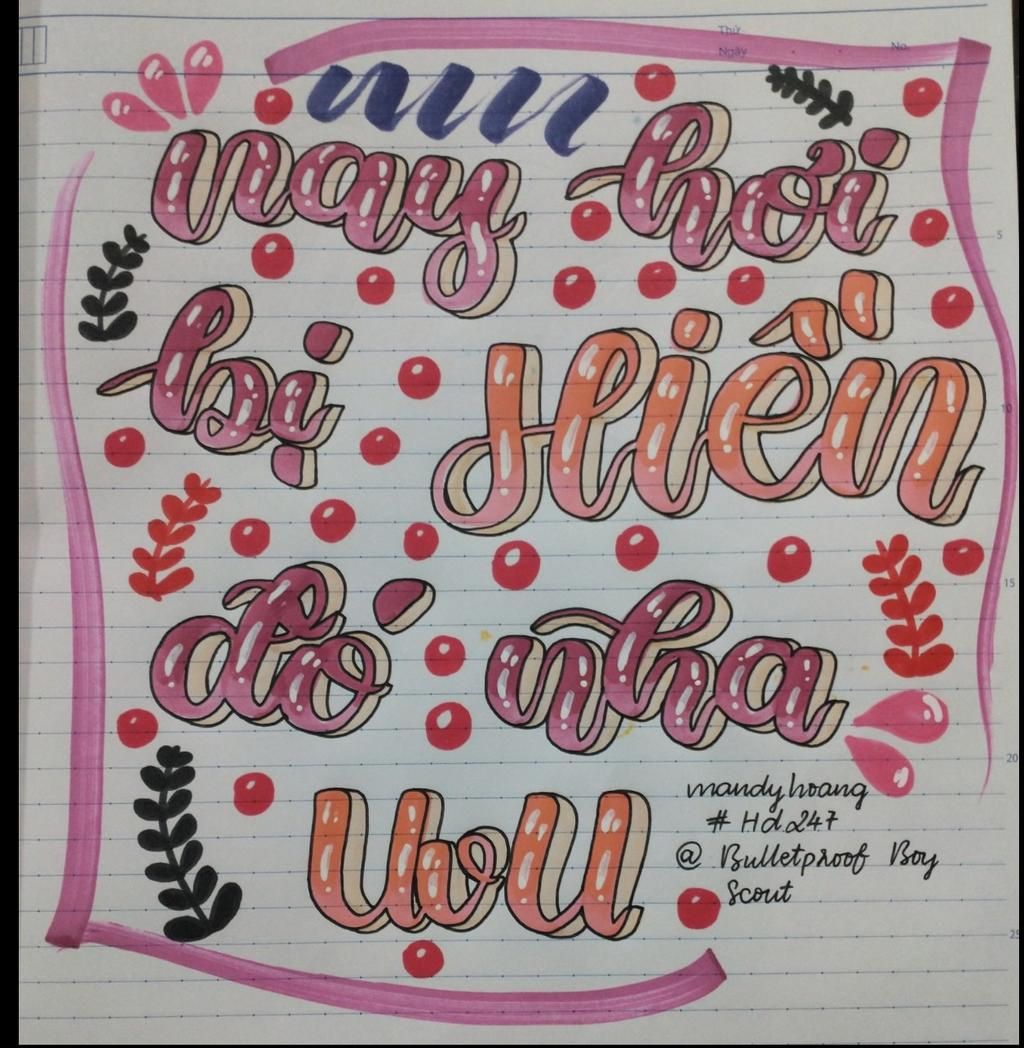 Thứ
Ngày No.
nay hơi
5
bị Hiền
10
15
đó nha
20
UwU
mandyhoang
# Hd247
@ Bulletproof Boy
Scout
25